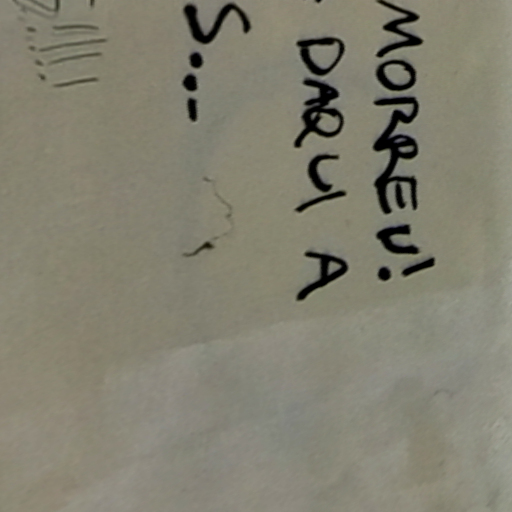 MORREU!
DAQUI A
S...